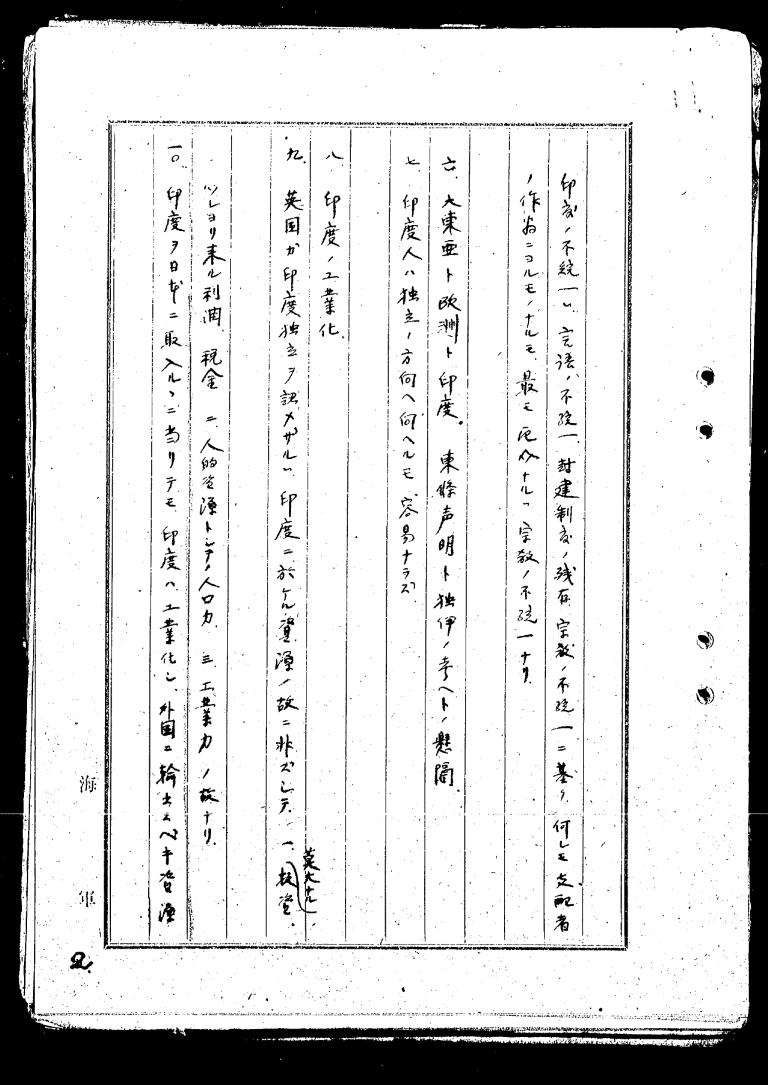 印度ノ不統一ハ、言語ノ不統一、封建制度ノ残存、宗教ノ不統一ニ基ク、何レモ支配者
ノ作為ニヨルモノナルモ、最モ厄介ナルハ宗教ノ不統一ナリ.
六、大東亜ト欧洲ト印度。 東條声明ト独伊ノ考ヘトノ懸隔.
七、印度人ハ独立ノ方向ヘ向ヘルモ、容易ナラズ
八、印度ノ工業化.
九、英国ガ印度独立ヲ認メザルハ、印度ニ於ケル資源ノ故ニ非ズシテ、一、莫大ナル投資、
ソレヨリ来ル利潤、税金 二、人的資源トシテノ人口力、三、工業力ノ故ナリ.
一〇、印度ヲ日本ニ取入ルヽニ当リテモ、印度ハ工業化シ、外国ニ輸出スベキ資源
海軍
2.